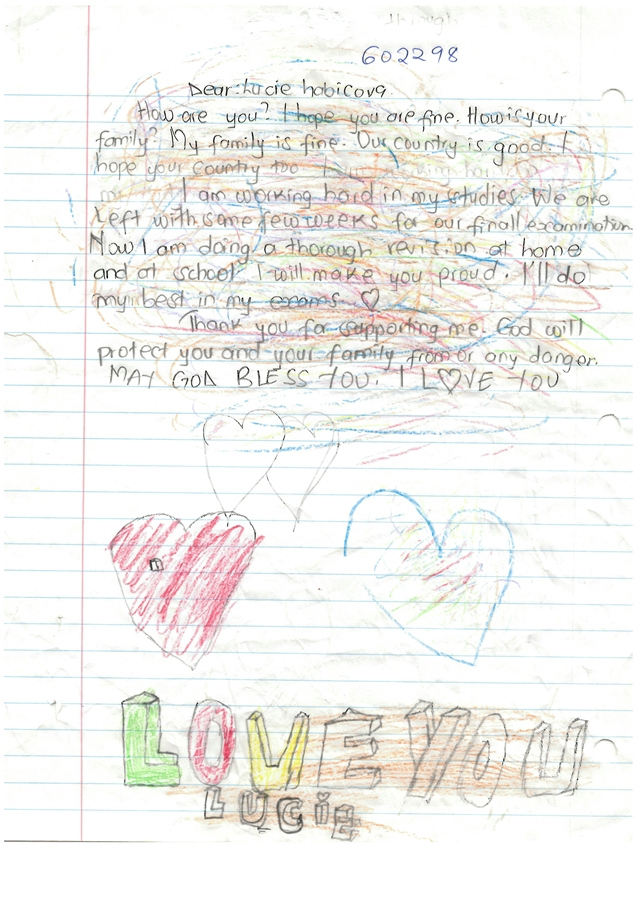 through
602298
Dear: Lucie habicova.
How are you? I hope you are fine. How is your
family? My family is fine. Our country is good. I
hope your country too
I am working hard in my studies. We are
left with some few weeks for our finall examination
Now I am doing a thorough revision at home
and at school. I will make you proud. I'll do
my best in my exams.
Thank you for supporting me. God will
protect you and your family from or any danger.
MAY GOD BLESS YOU. I L♡VE YOU
LOVE YOU
LUCiE